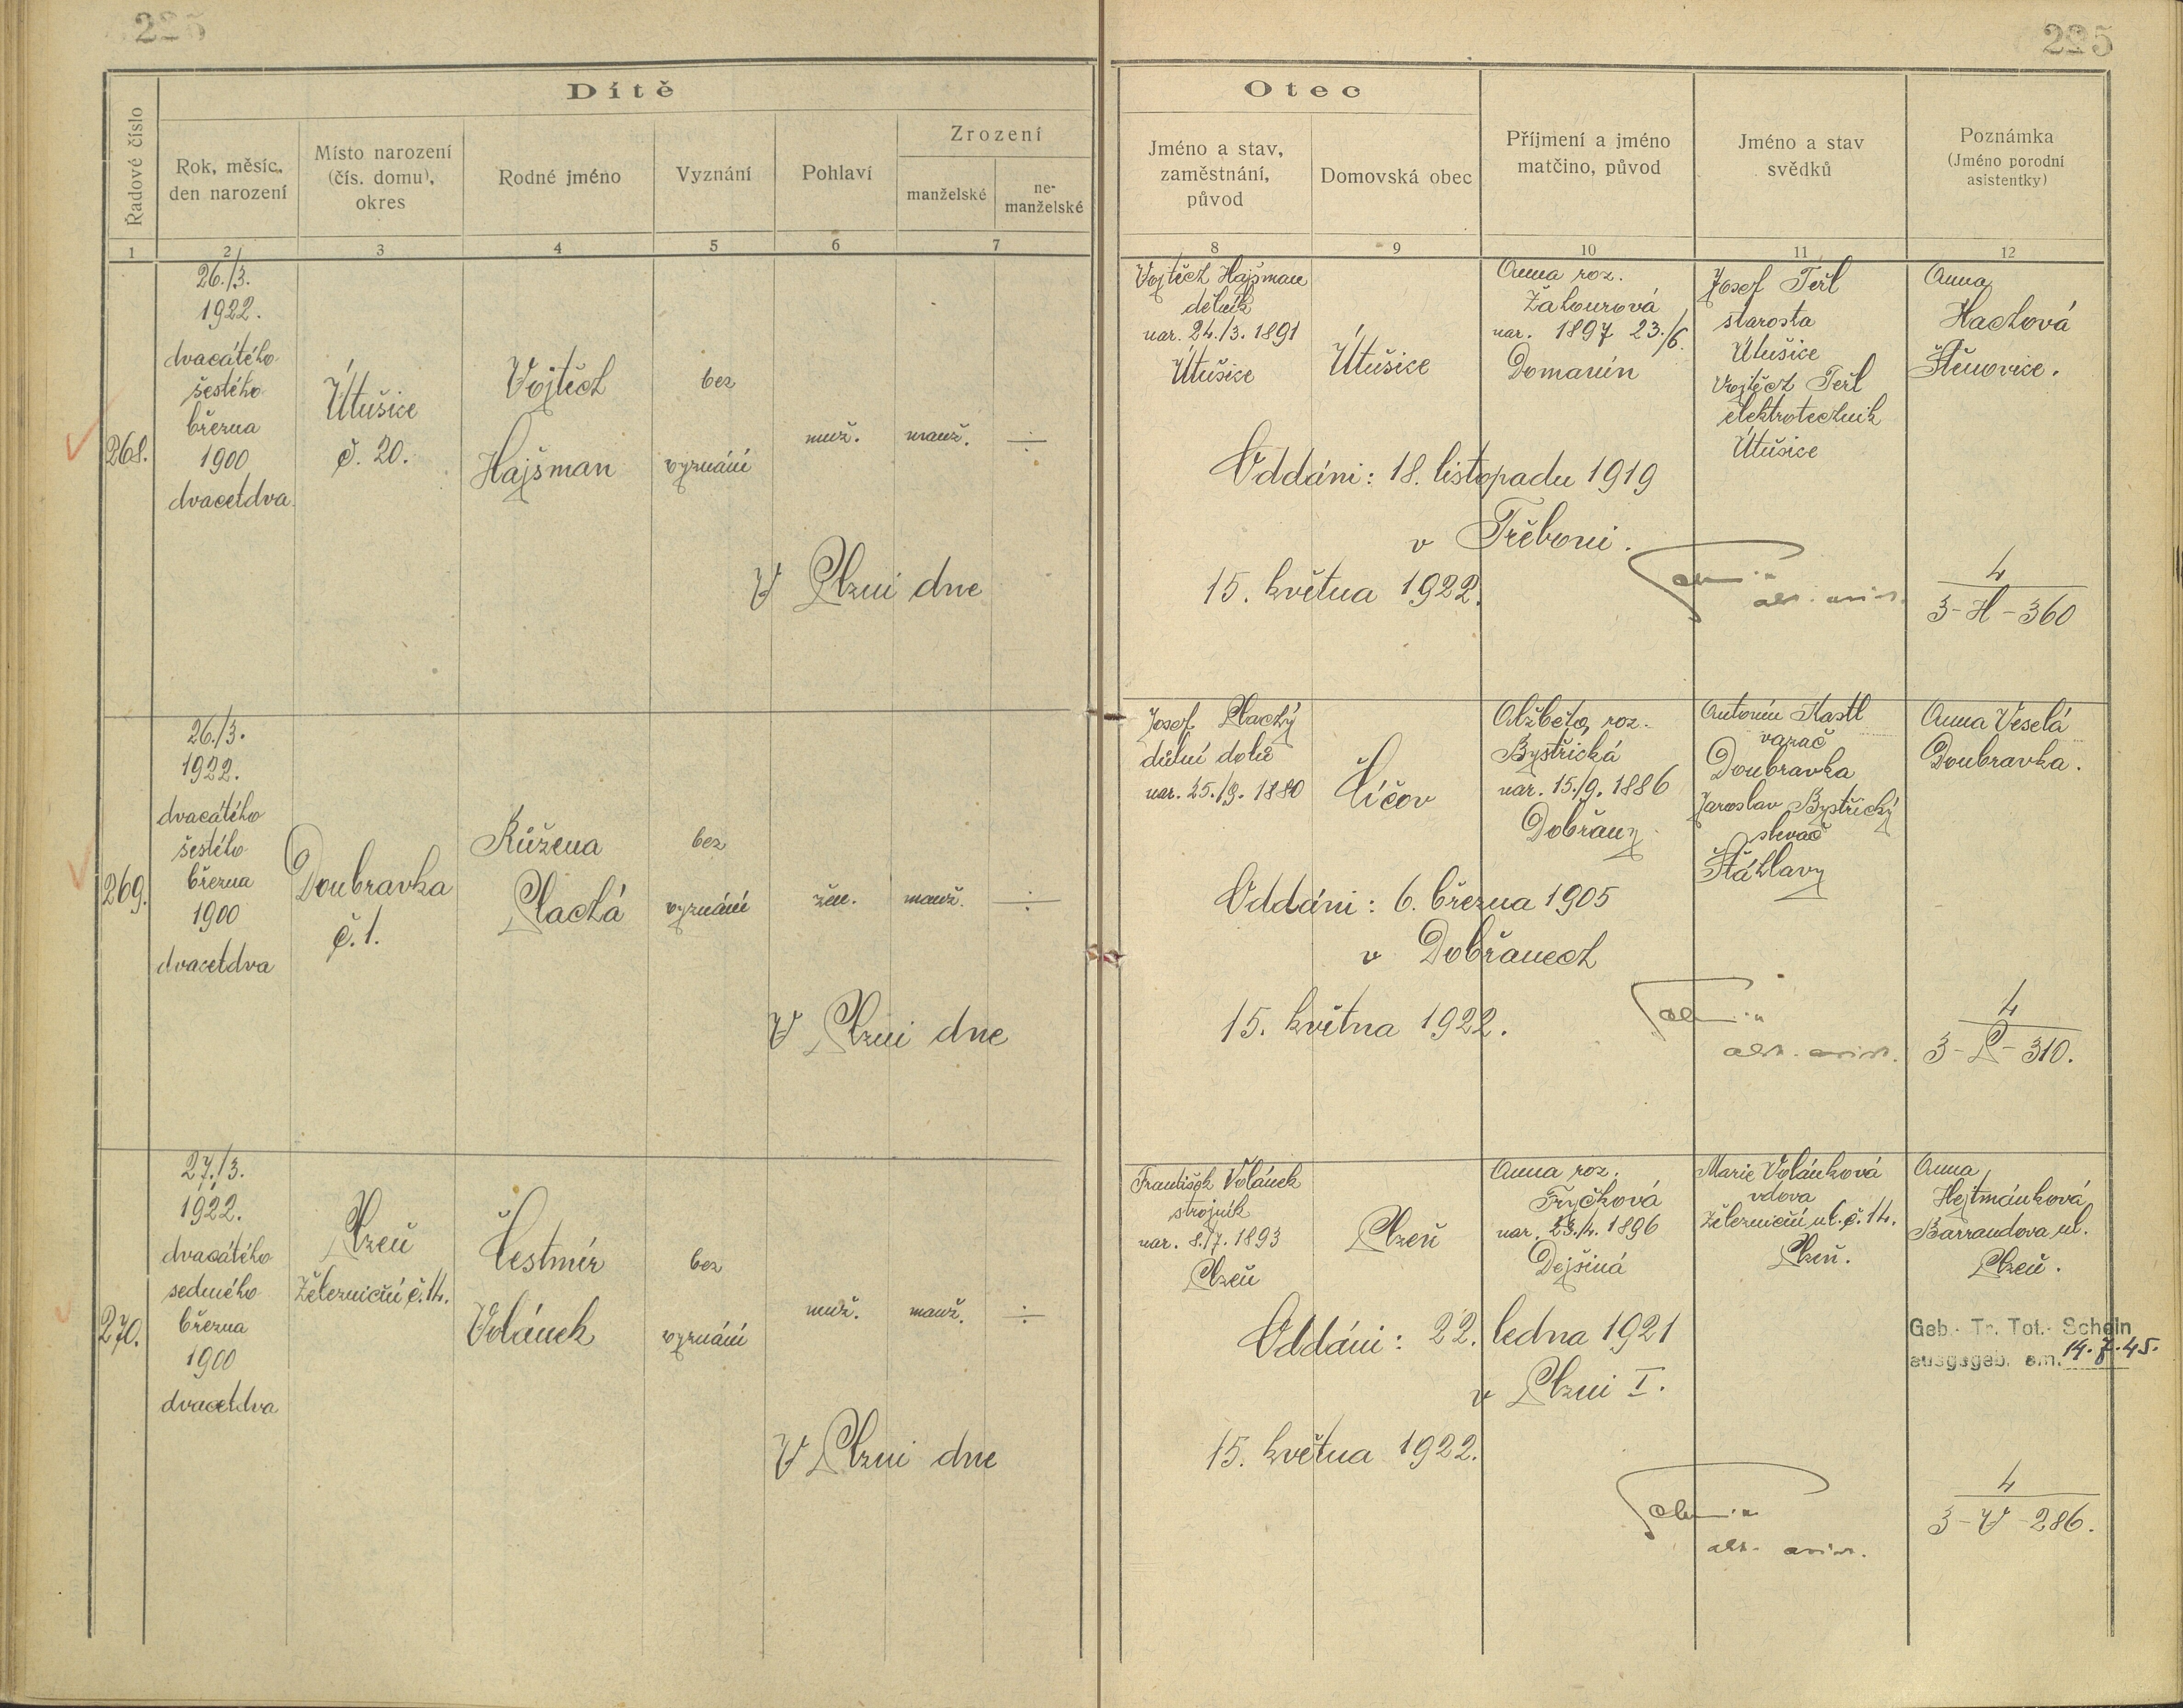 225
225
Dítě
Otec
Řadové číslo
Rok, měsíc,
den narození
Místo narození
(čís. domu),
okres
Rodné jméno
Vyznání
Pohlaví
Zrození
manželské
ne-
manželské
Jméno a stav,
zaměstnání,
původ
Domovská obec
Příjmení a jméno
matčino, původ
Jméno a stav
svědků
Poznámka
(Jméno porodní
asistentky)
1
2
3
4
5
6
7
8
9
10
11
12
268.
26./3.
1922.
dvacátého
šestého
března
1900
dvacetdva
Útušice
č. 20.
Vojtěch
Hajšman
bez
vyznání
muž.
manž.
÷
V Plzni dne
Vojtěch Hajšman
dělník
nar. 24./3. 1891
Útušice
Útušice
Anna roz.
Žahourová
nar. 1897 23./6.
Domanín
Josef Teřl
starosta
Útušice
Vojtěch Teřl
elektrotechnik
Útušice
Anna
Hachová
Štěnovice.
Oddáni: 18. listopadu 1919
v Třeboni.
15. května 1922.
4
3-H-360
269.
26./3.
1922.
dvacátého
šestého
března
1900
dvacetdva
Doubravka
č. 1.
Růžena
Plachá
bez
vyznání
žen.
manž.
÷
V Plzni dne
Josef Plachý
důlní
nar. 25./9. 1880
Líčov
Alžběta, roz.
Bystřická
nar. 15./9. 1886
Dobřany
Antonín Kastl
vazač
Doubravka
Jaroslav Bystřický
slevač
Šťáhlavy
Anna Veselá
Doubravka.
Oddáni: 6. března 1905
v Dobřanech
15. května 1922.
4
3-P-310.
270.
27./3.
1922.
dvacátého
sedmého
března
1900
dvacetdva
Plzeň
Železniční č. 14.
Čestmír
Volánek
bez
vyznání
muž.
manž.
÷
V Plzni dne
František Volánek
strojník
nar. 8./7. 1893
Plzeň
Plzeň
Anna roz.
Fryčková
nar. 23./4. 1896
Dejšiná
Marie Volánková
vdova
Železniční ul. č. 14.
Plzeň.
Anna
Hejtmánková
Barrandova ul.
Plzeň.
Geb.- Tr. Tot.- Schein
ausgegeb. am. 14.7.45.
Oddáni: 22. ledna 1921
v Plzni I.
15. května 1922.
4
3-V-286.